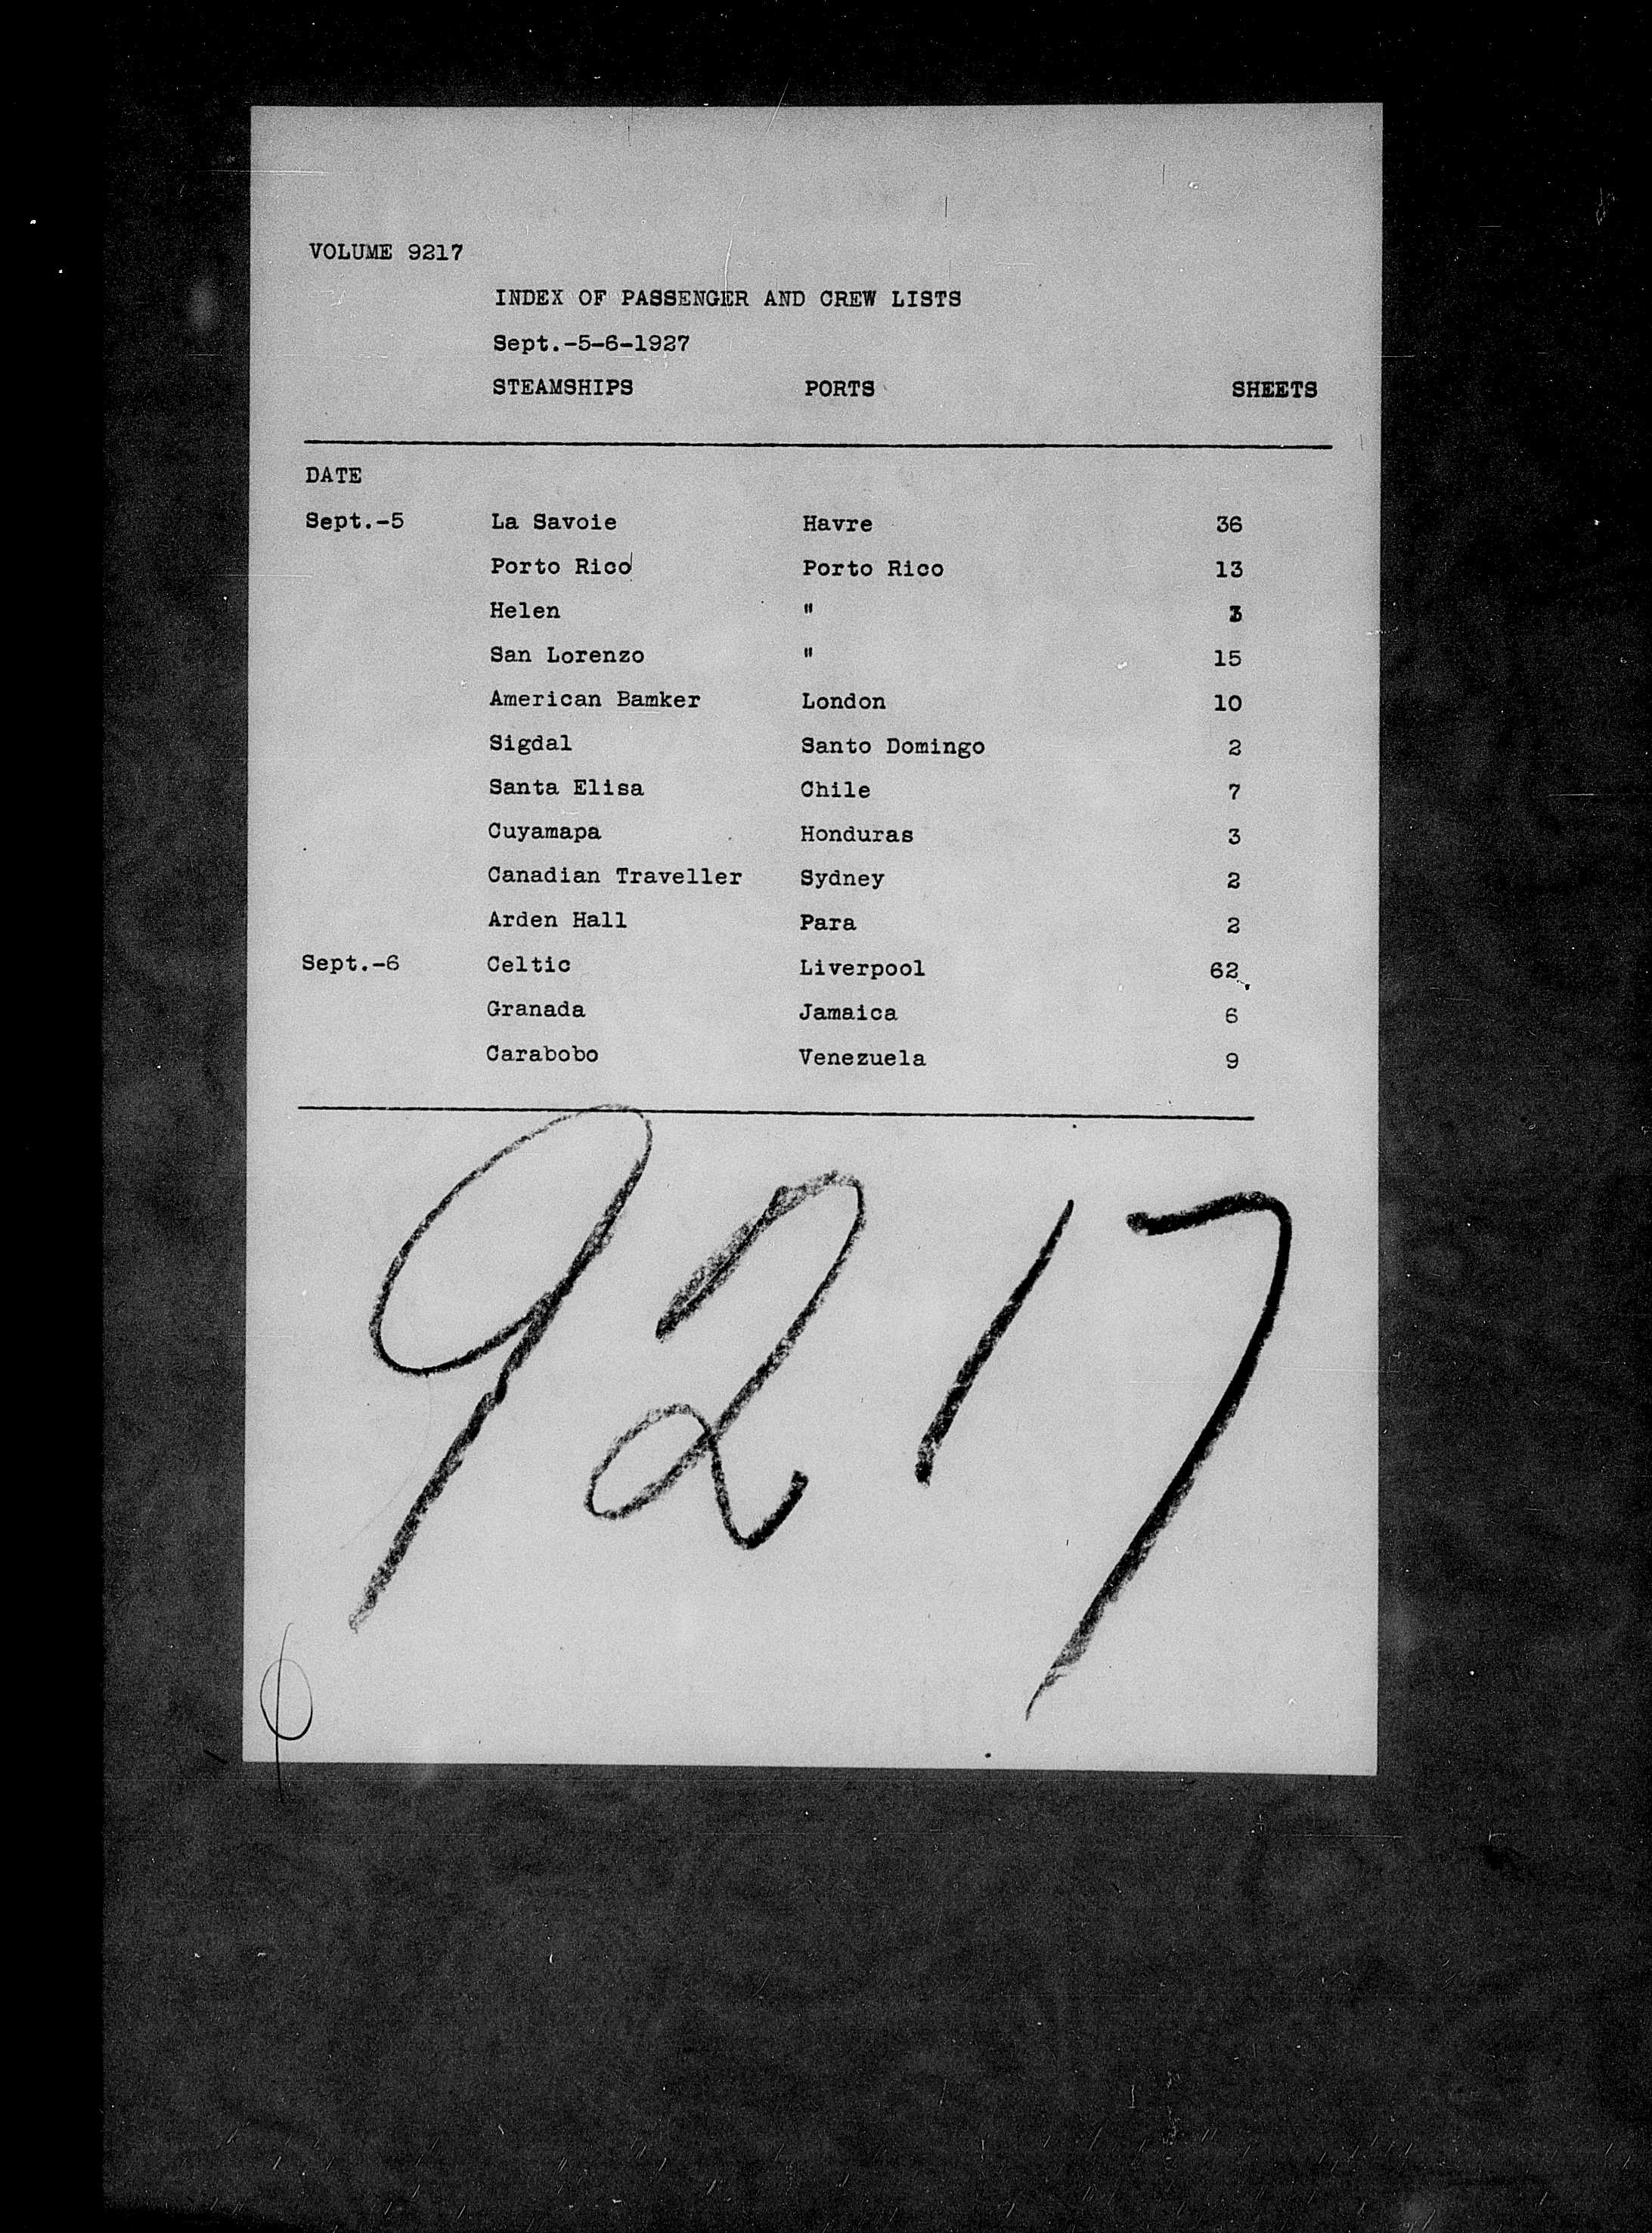 VOLUME 9217
INDEX OF PASSENGER AND CREW LISTS
Sept.-5-6-1927
STEAMSHIPS PORTS SHEETS
DATE
Sept.-5 La Savoie Havre 36
Porto Rico Porto Rico 13
Helen "
San Lorenzo " 15
American Bamker London 10
Sigdal Santo Domingo 2
Santa Elisa Chile 7
Cuyamapa Honduras 3
Canadian Traveller Sydney 2
Arden Hall Para 2
Sept.-6 Celtic Liverpool 62
Granada Jamaica 6
Carabobo Venezuela 9
9217